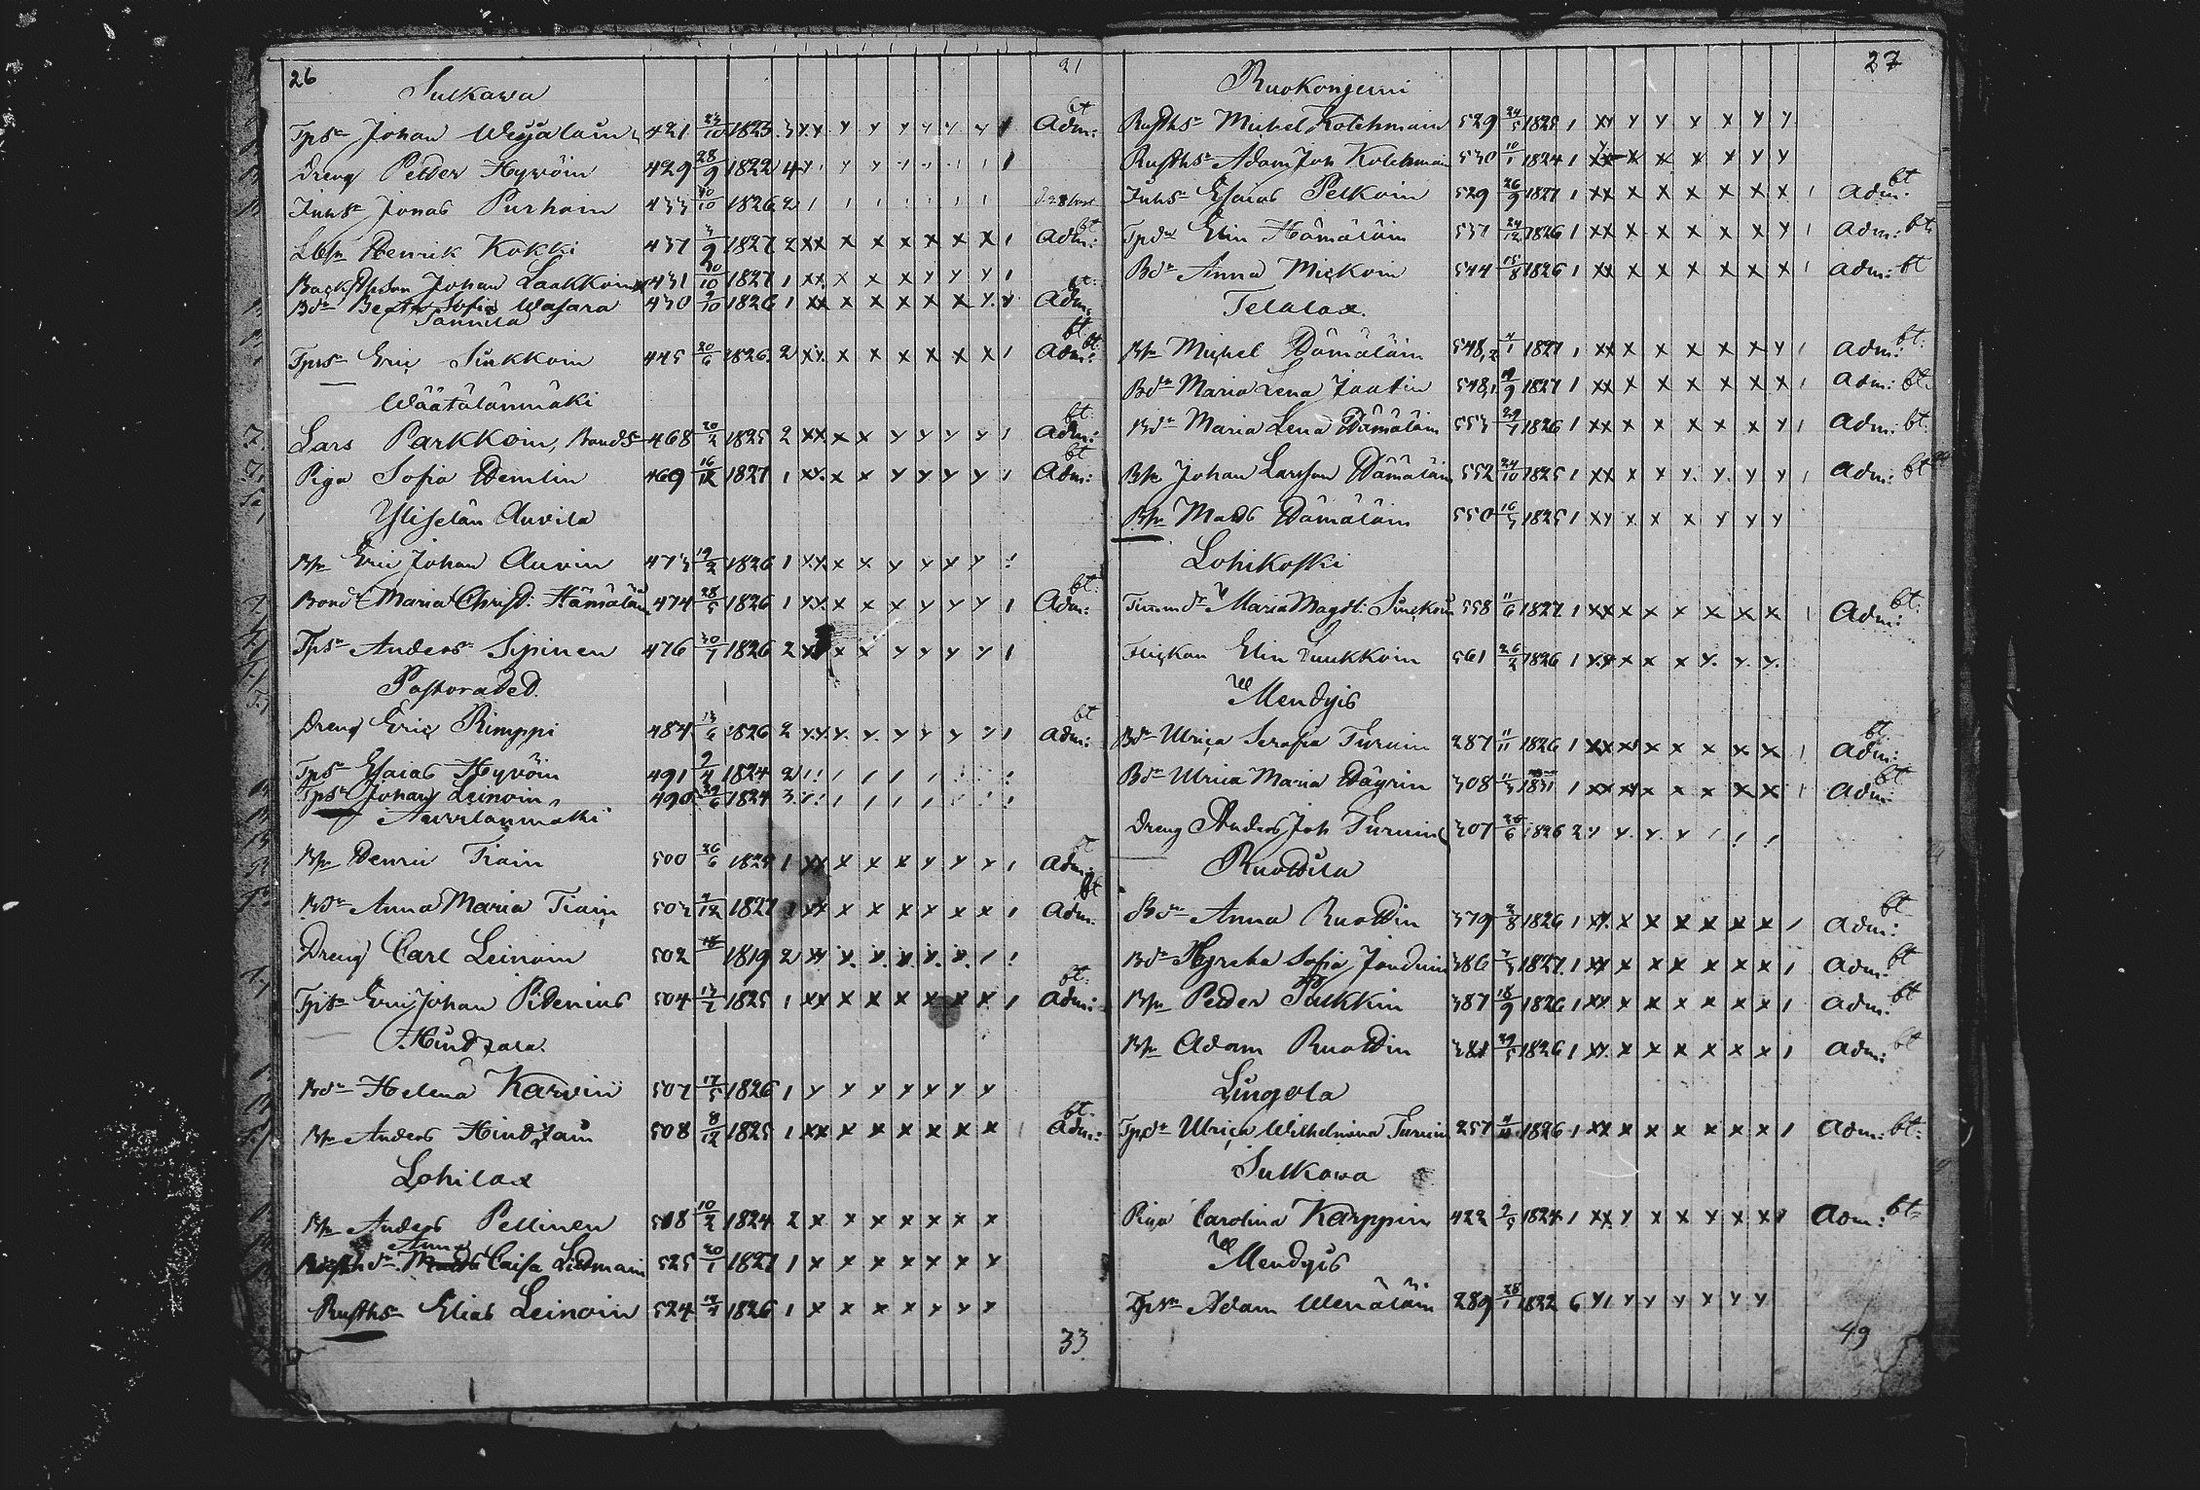 26 21
Sulkawa
Tpsn Johan Weijaläin 421 23/10 1823 3 y y y y y y y y Adm: bt
Dreng Petter Hyvöin 429 28/9 1822 4 y
Inhsn Jonas Purhoin 433 30/10 1826 2
Lbsn Henrik Kokki 437 3/9 1827 2 x x x x x x x x Adm: bt
Johan Laakkoin 431 30/10 1827 1 x x x x x y y y
Bdr Beata Sofia Wasara 430 9/10 1826 1 x x x x x x x y Adm: bt
Sannila
Tpsn Eric Sinkkoin 445 20/6 1826 2 x x x x x x x x Adm: bt
Wäätälänmäki
Lars Parkkoin, Bonds 468 20/2 1825 2 x x x x y y y y Adm: bt
Piga Sofia Hemlin 469 16/12 1827 1 x y x x y y y y Adm: bt
Yliselän Auvila
Bsn Eric Johan Auvin 473 19/2 1826 1 x y x x y y y y
Bondr Maria Christ: Hämäläin 474 28/5 1826 1 y y x x x y y y Adm: bt
Tpsn Anders Sipinen 476 30/7 1826 2 x x x y y y y
Pastorated
Dreng Eric Rimppi 487 13/6 1826 2 y y y y y y y y Adm: bt
Tpsn Esaias Hyvöin 491 2/4 1824 2
Tpsn Johan Leinoin 490 1824 3
Auvilanmäki
Bsn Henric Tiain 500 26/6 1825 1 x x x x x y y y Adm: bt
Bdr Anna Maria Tiain 503 2/12 1827 x x x x x x x x Adm: bt
Dreng Carl Leinoin 502 1819 2 x y y y y y
Tpsn Eric Johan Pidenius 504 13/2 1825 1 x x x x x x x x Adm: bt
Hindzara
Bdr Helena Karviin 507 17/5 1826 1 y y y y y y y
Bsn Anders Hindzain 508 8/12 1825 1 x x x x x x x x Adm: bt
Lohilax
Bsn Anders Pellinen 518 10/2 1824 2 x x x x x x x
Anna
Caisa Liedmain 525 20/1 1827 1 x x x x x x x
Rusthsn Elias Leinoin 524 1826 1 x x x x y y x
33
27
Ruokonjemi
Rusthsn Michel Kolehmain 529 24/5 1825 1 x y y y x x y y
Rusthsn Adam Joh Kolehmain 530 10/1 1824 1 x x x x x x y y
Inhsn Esaias Pelkoin 529 26/9 1827 1 x x x x x x x x Adm: bt
Tpdr Elin Hämäläin 537 24/12 1826 1 x x x x x x x y Adm: bt
Bdr Anna Mickoin 544 15/8 1826 1 x x x x x x x x Adm: bt
Telalax.
Bsn Michel Hämäläin 548,2 4/1 1827 1 x x x x x x x y Adm: bt
Bdr Maria Lena Jaatin 548,1 19/9 1827 1 x x x x x x x x Adm: bt
Bdr Maria Lena Hämäläin 553 29/7 1826 1 x x x x x x x y Adm: bt
Bsn Johan Larsson Hämäläin 552 24/10 1825 1 x x x x y y y y Adm: bt
Bsn Mats Hämäläin 550 16/3 1825 1 x y x x x y y y
Lohikoski
Timmdr Maria Magdl: Sinckoin 558 11/6 1827 1 x x x x x x x x Adm: bt
Flickan Elin Luukkoin 561 26/2 1826 1 y y x x x y y y
Wl Mendyis
Bdr Ulrica Serafia Turuin 287 11/11 1826 1 x x x x x x x x Adm: bt
Bdr Ulrica Maria Häyrin 308 11/3 1 x x x x x x x x Adm: bt
Dreng Anders Joh Turuin 307 26/6 1826 2 y y y y
Ruottila
Bdr Anna Ruottin 379 2/8 1826 1 x x x x x x x x Adm: bt
Bdr Hyreta Sofia 386 2/3 1827 1 x x x x x x x x Adm: bt
Bsn Petter Pulkkin 387 18/9 1826 1 x x x x x x x x Adm: bt
Bsn Adam Ruottin 381 29/5 1826 1 x x x x x x x x Adm: bt
Lingola
Tpdr Ulrica Wilhelmina Turuin 257 1826 1 x x x x x x x x Adm: bt
Sulkawa
Piga Carolina Karppin 422 2/5 1824 1 x x y x x y x x Adm: bt
Wl Mendyis
Tpsn Adam Wenäläin 289 28/1 1822 6 y y y y y y y
49